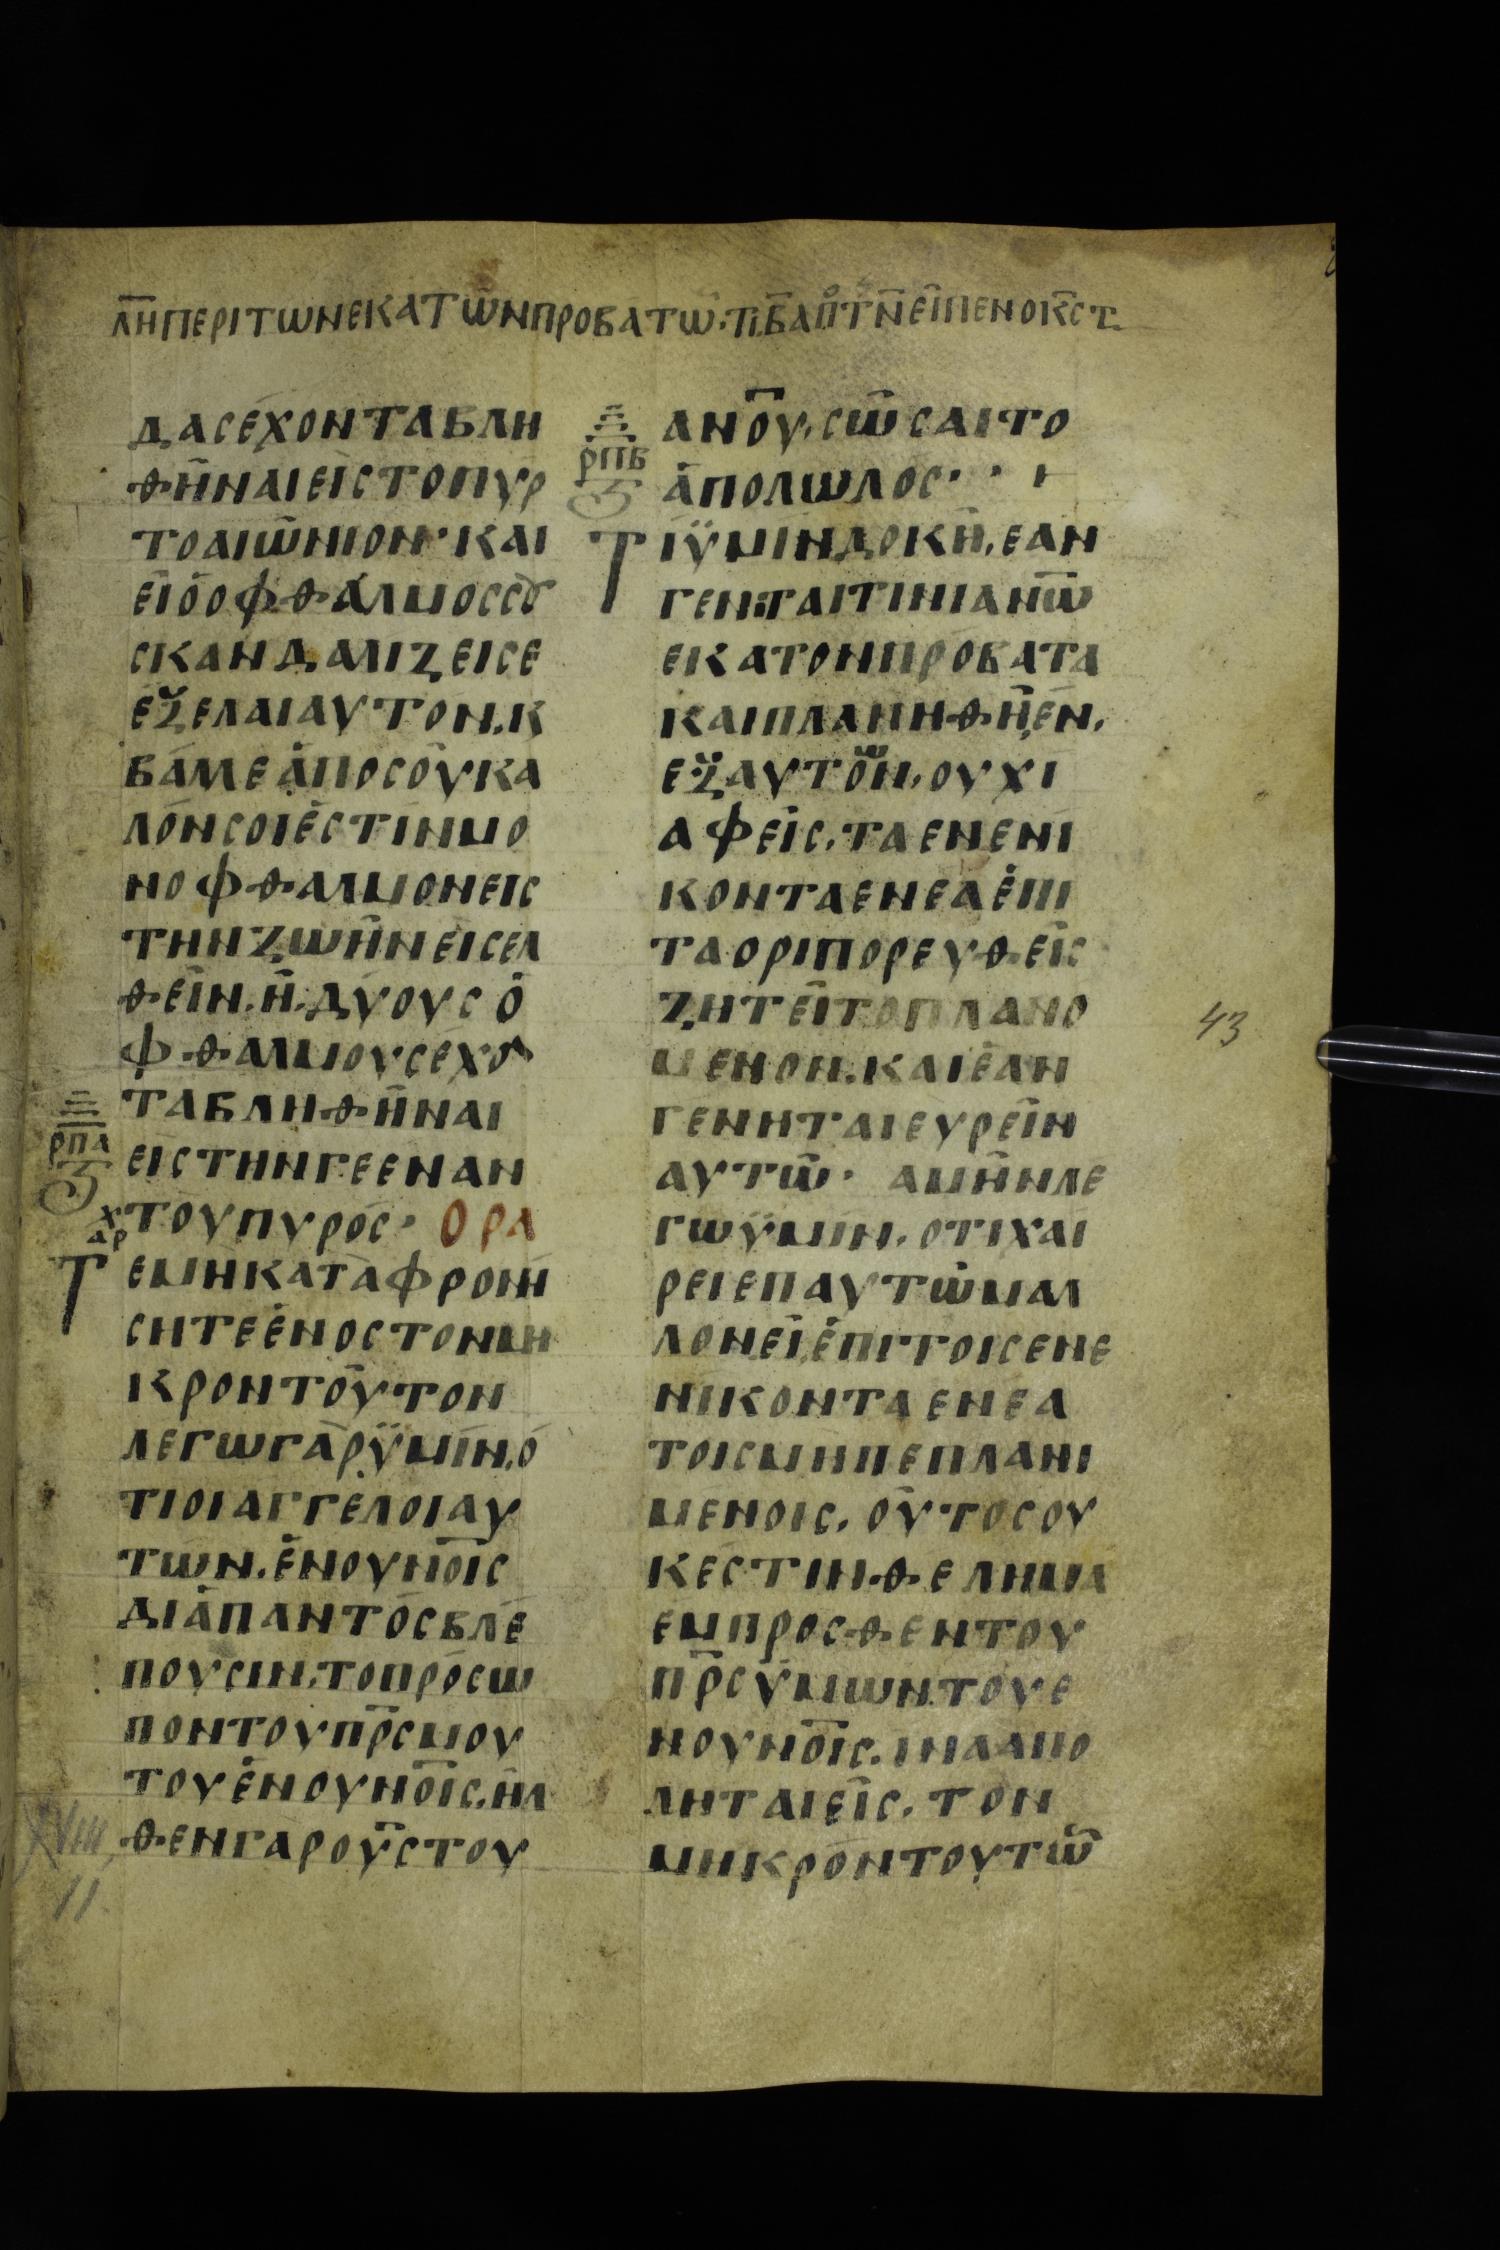 ΛΗ ΠΕΡΙ ΤΩΝ ΕΚΑΤΩΝ ΠΡΟΒΑΤΩ·
ΔΑΣ ΕΧΟΝΤΑ ΒΛΗ
ΘΗΝΑΙ ΕΙΣ ΤΟ ΠΥΡ
ΤΟ ΑΙΩΝΙΟΝ· ΚΑΙ
ΕΙ Ο ΟΦΘΑΛΜΟΣ ΣȢ
ΣΚΑΝΔΑΛΙΖΕΙ ΣΕ
ΕΞΕΛΑΙ ΑΥΤΟΝ. Κ
ΒΑΜΕ ΑΠΟ ΣΟΥ ΚΑ
ΛΟΝ ΣΟΙ ΕΣΤΙΝ ΜΟ
ΝΟΦΘΑΛΜΟΝ ΕΙΣ
ΤΗΝ ΖΩΗΝ ΕΙΣΕΛ
ΘΕΙΝ. Η. ΔΥΟ ΥΣ Ο
ΦΘΑΛΜΟΥΣ ΕΧΟΝ
ΤΑ ΒΛΗΘΗΝΑΙ
ΕΙΣ ΤΗΝ ΓΕΕΝΑΝ
ΤΟΥ ΠΥΡΟΣ· ΟΡΑ
ΡΠΑ
ΤΕ ΜΗ ΚΑΤΑΦΡΟΝΗ
ΣΗΤΕ ΕΝΟΣ ΤΟΝ ΜΗ
ΚΡΟΝ ΤΟΥΤΟΝ
ΛΕΓΩ ΓΑΡ ΫΜΙΝ. Ο
ΤΙ ΟΙ ΑΓΓΕΛΟΙ ΑΥ
ΤΩΝ. ΕΝ ΟΥΝΟΙΣ
ΔΙΑΠΑΝΤΟΣ ΒΛΕ
ΠΟΥΣΙΝ. ΤΟ ΠΡΟΣΩ
ΠΟΝ ΤΟΥ ΠΡΣ ΜΟΥ
ΤΟΥ ΕΝ ΟΥΝΟΙΣ. ΗΛ
ΘΕΝ ΓΑΡ Ο ΥΣ ΤΟΥ
XVIII,
11.
ΡΠΒ
ΑΝΟΥ. ΣΩΣΑΙ ΤΟ
ΑΠΟΛΩΛΟΣ·
ΤΙ ΫΜΙΝ ΔΟΚΗ. ΕΑΝ
ΓΕΝΙΤΑΙ ΤΙΝΙ ΑΝΩ
ΕΚΑΤΟΝ ΠΡΟΒΑΤΑ
ΚΑΙ ΠΛΑΝΗΘΗ, ΕΝ.
ΕΞ ΑΥΤΟΝ. ΟΥΧΙ
ΑΦΕΙΣ. ΤΑ ΕΝΕΝΙ
ΚΟΝΤΑΕΝΕΑ ΕΠΙ
ΤΑ ΟΡΙ ΠΟΡΕΥΘΕΙΣ
ΖΗΤΕΙ ΤΟ ΠΛΑΝΟ
ΜΕΝΟΝ. ΚΑΙ ΕΑΝ
ΓΕΝΗΤΑΙ ΕΥΡΕΙΝ
ΑΥΤΩ· ΑΜΗΝ ΛΕ
ΓΩ ΫΜΙΝ. ΟΤΙ ΧΑΙ
ΡΕΙ ΕΠ ΑΥΤΩ ΜΑΛ
ΛΟΝ ΕΙ, ΕΠΙ ΤΟΙΣ ΕΝΕ
ΝΙΚΟΝΤΑ ΕΝΕΑ
ΤΟΙΣ ΜΗ ΠΕΠΛΑΝΙ
ΜΕΝΟΙΣ. ΟΥΤΟΣ ΟΥ
Κ ΕΣΤΙΝ ΘΕΛΗΜΑ
ΕΜΠΡΟΣΘΕΝ ΤΟΥ
ΠΡΣ ΫΜΩΝ. ΤΟΥ Ε
Ν ΟΥΝΟΙΣ. ΙΝΑ ΑΠΟ
ΛΗΤΑΙ ΕΙΣ. ΤΟΝ
ΜΗΚΡΟΝ ΤΟΥΤΩ
43